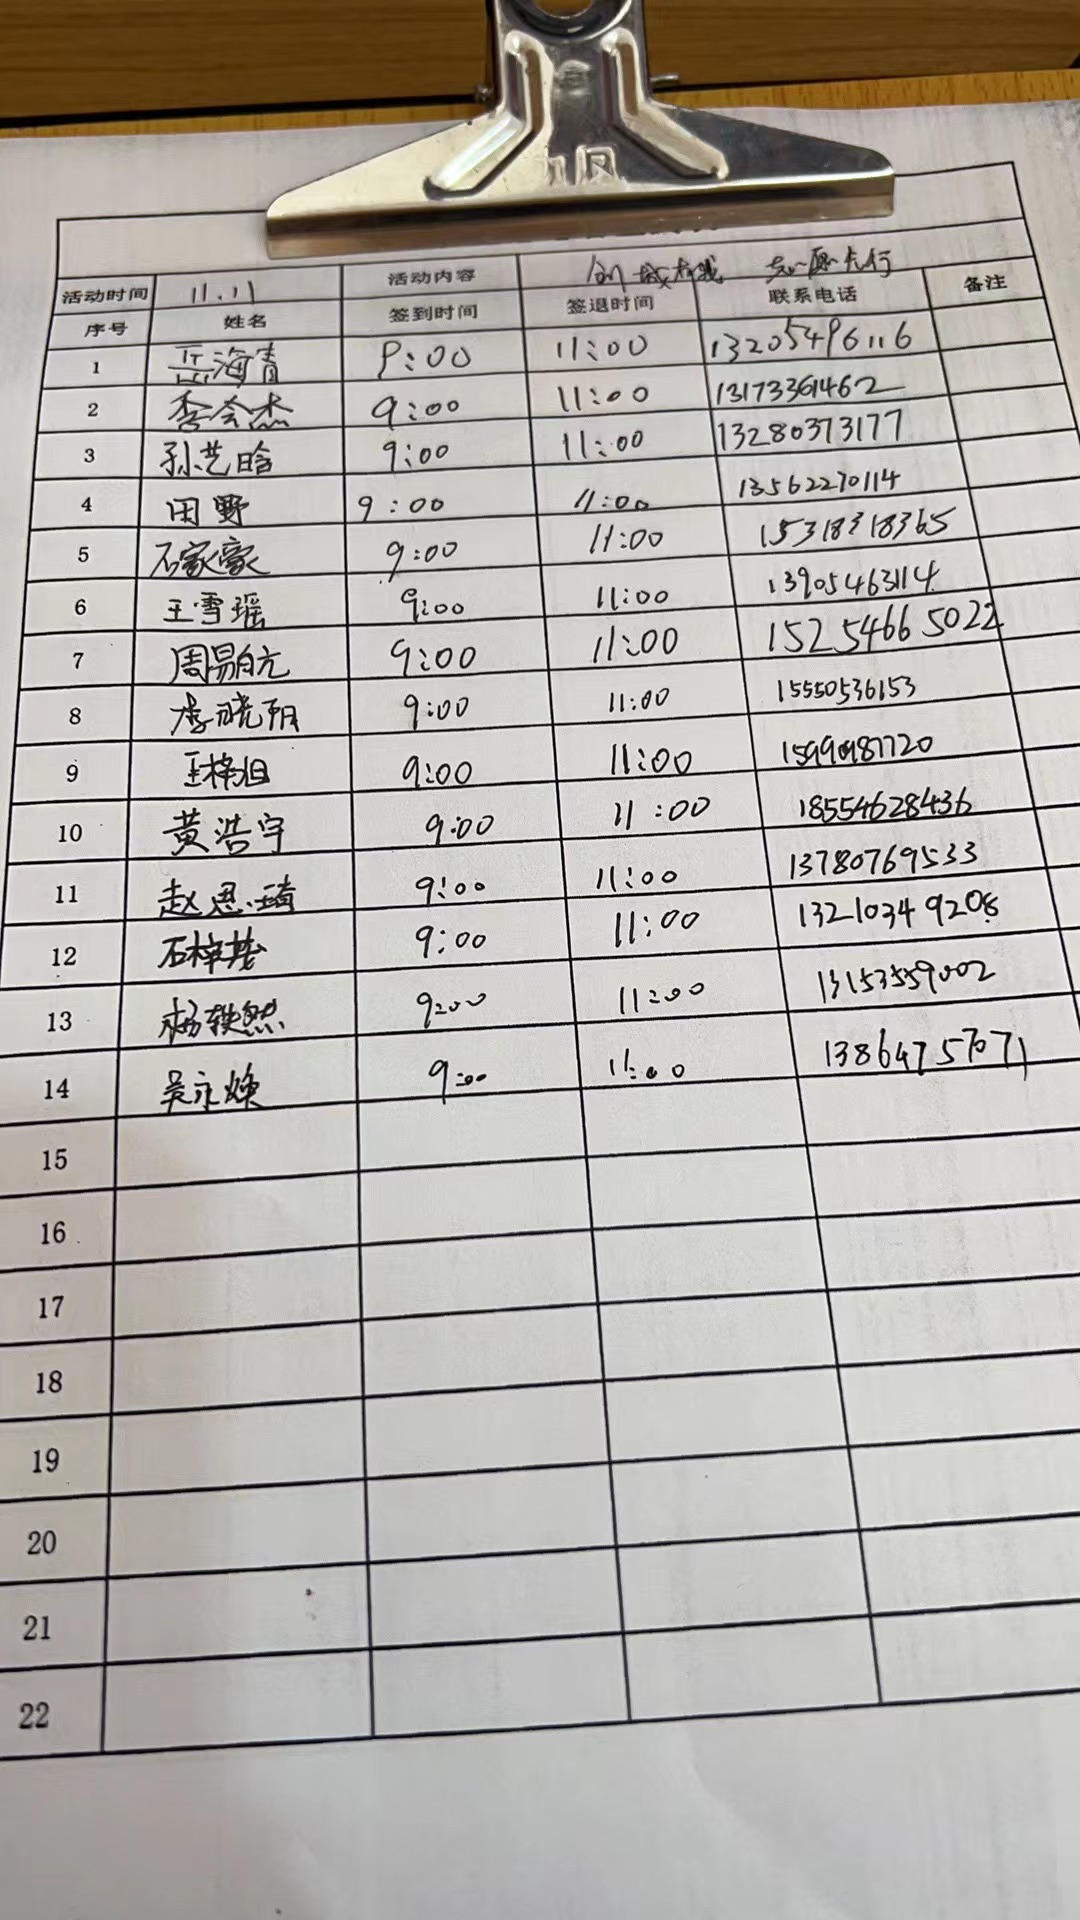 活动时间 11.11 活动内容 创城有我 志愿先行
序号 姓名 签到时间 签退时间 联系电话 备注
1 岳海青 9:00 11:00 13205496116
2 李会杰 9:00 11:00 13173361462
3 孙艺晗 9:00 11:00 13280373177
4 田野 9:00 11:00 13562270114
5 石家豪 9:00 11:00 15318318365
6 王雪瑶 9:00 11:00 13905463114
7 周易航 9:00 11:00 15254665022
8 李晓玥 9:00 11:00 15550536153
9 王梓旭 9:00 11:00 15990987720
10 黄浩宇 9:00 11:00 18554628436
11 赵思琦 9:00 11:00 13780769533
12 石梓茂 9:00 11:00 13210349208
13 杨轶然 9:00 11:00 13153559002
14 吴永焕 9:00 11:00 13864757071
15
16
17
18
19
20
21
22